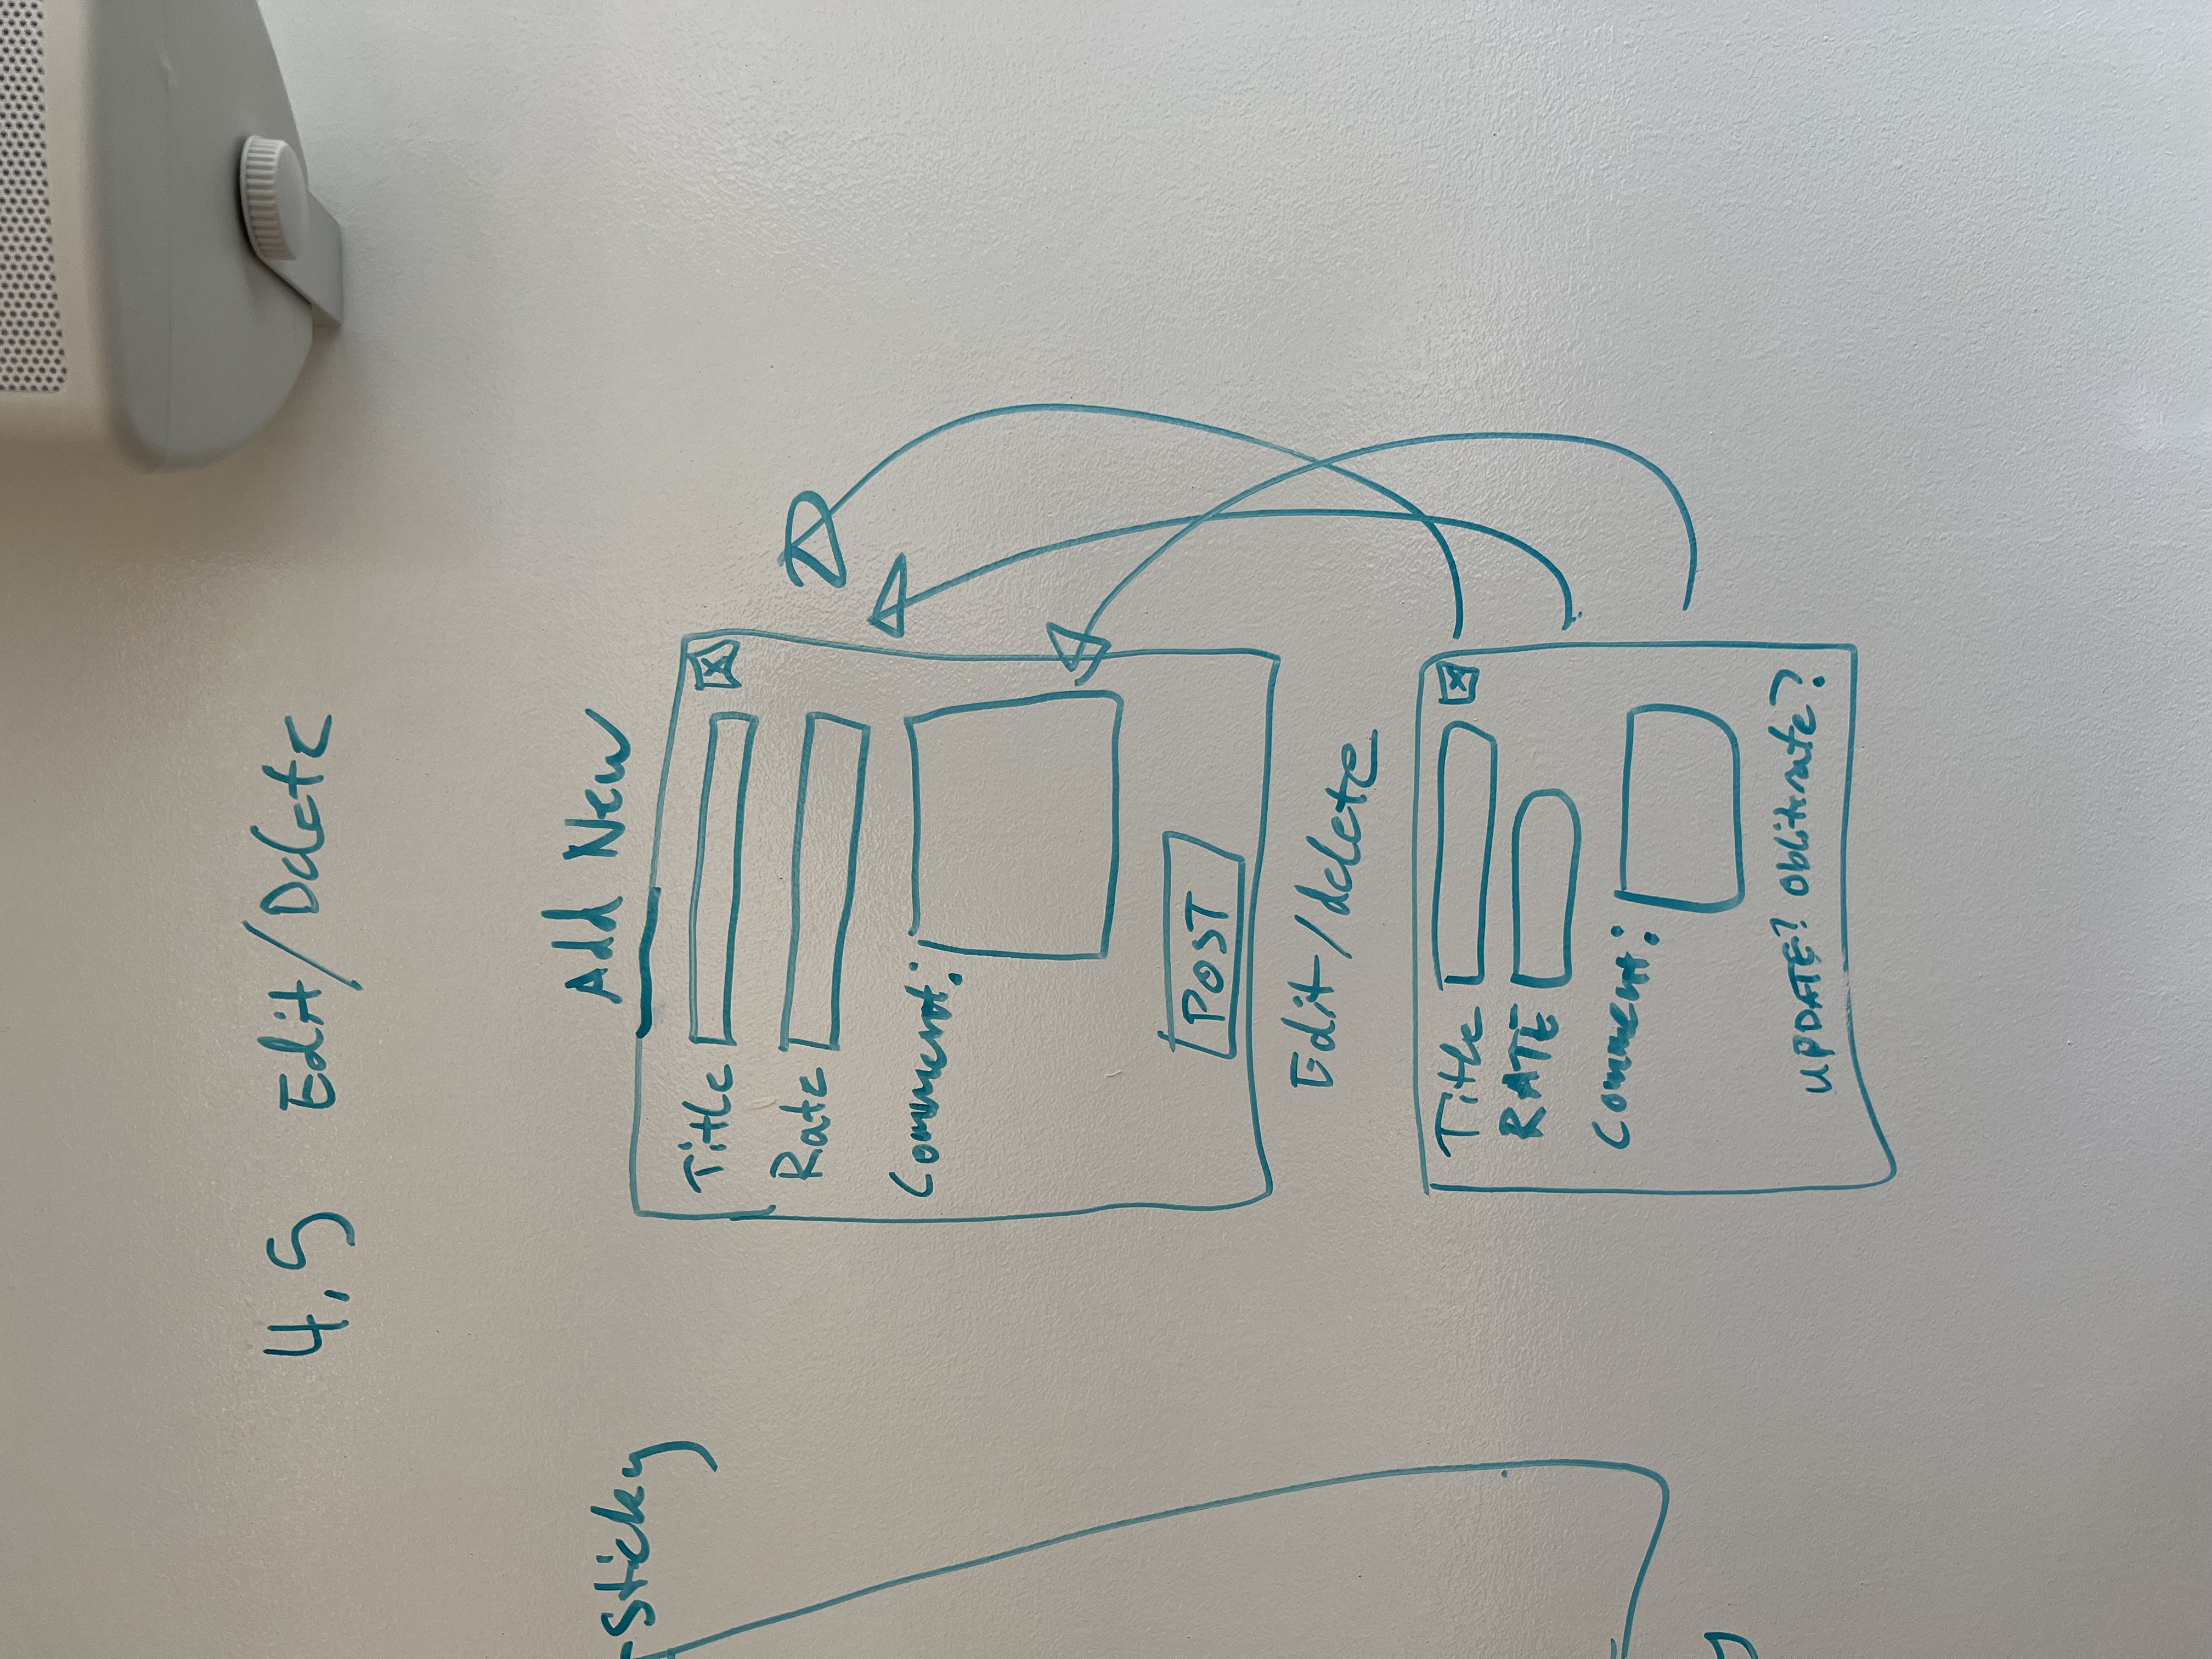 4,5 Edit/Delete
Sticky
Add New
Title
Rate
Comment:
POST
Edit/delete
Title
RATE
Comment:
UPDATE? Obliterate?